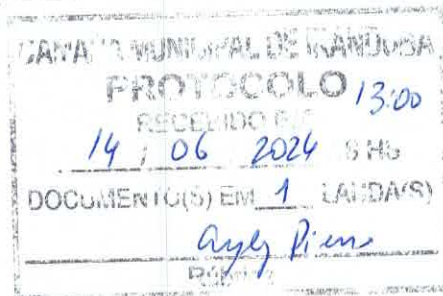 CAMARA MUNICIPAL DE IRANDUBA
PROTOCOLO 13:00
RECEBIDO EM
14 / 06 2024 S HS
DOCUMENTO(S) EM 1 LAUDA(S)